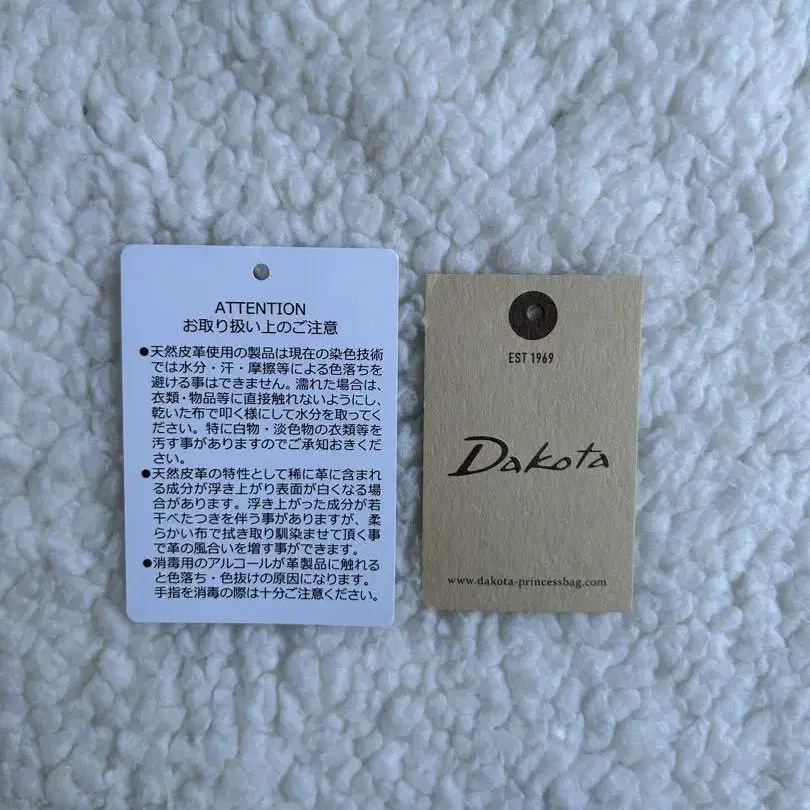 ATTENTION
お取り扱い上のご注意
●天然皮革使用の製品は現在の染色技術
では水分・汗・摩擦等による色落ちを
避ける事はできません。濡れた場合は、
衣類・物品等に直接触れないようにし、
乾いた布で叩く様にして水分を取ってく
ださい。特に白物・淡色物の衣類等を
汚す事がありますのでご承知おきくだ
さい。
●天然皮革の特性として稀に革に含まれ
る成分が浮き上がり表面が白くなる場
合があります。浮き上がった成分が若
干べたつきを伴う事がありますが、柔
らかい布で拭き取り馴染ませて頂く事
で革の風合いを増す事ができます。
●消毒用のアルコールが革製品に触れる
と色落ち・色抜けの原因になります。
手指を消毒の際は十分ご注意ください。
EST 1969
Dakota
www.dakota-princessbag.com